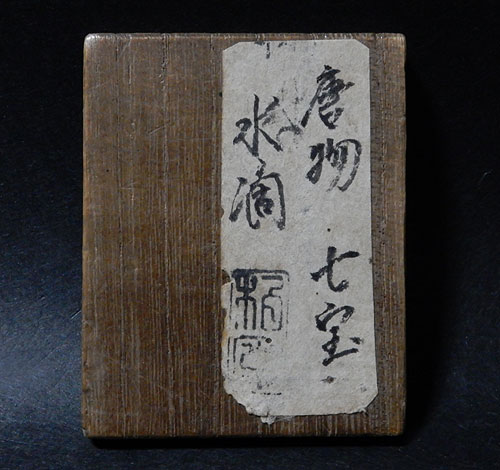 唐物 七宝
水滴